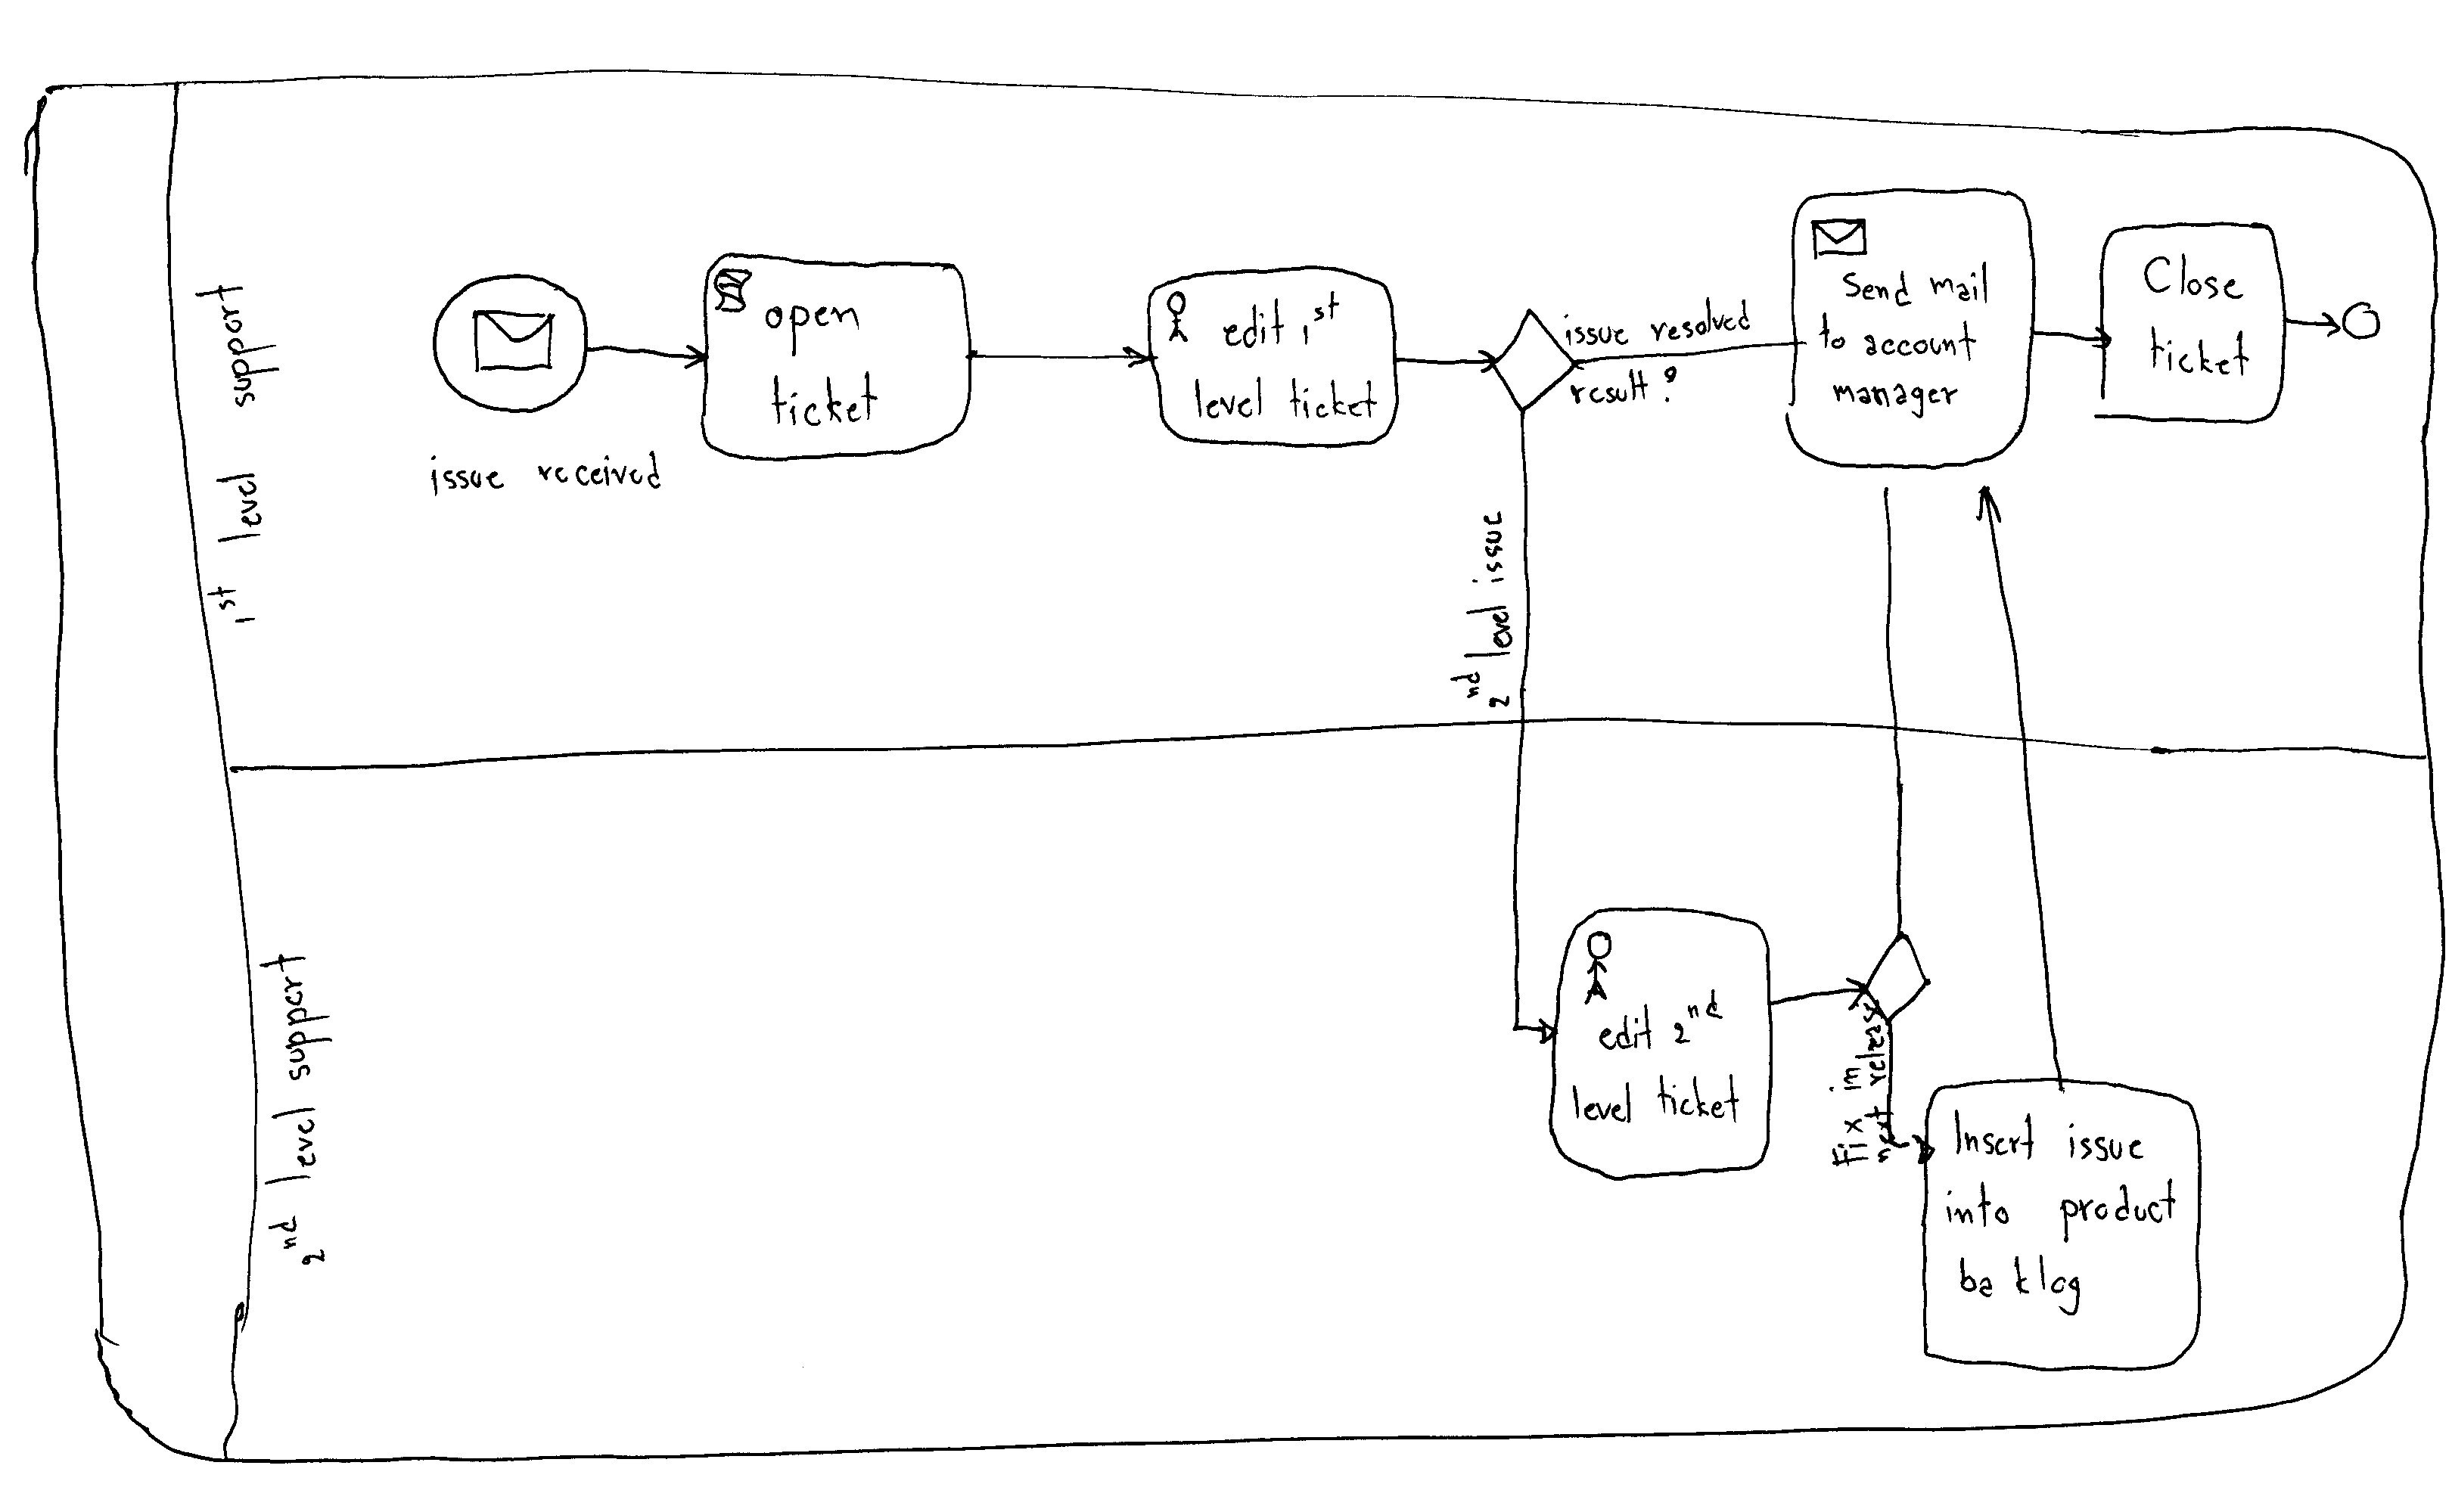 1st level support
issue received
open
ticket
edit 1st
level ticket
issue resolved
result?
Send mail
to account
manager
Close
ticket
2nd level issue
2nd level support
edit 2nd
level ticket
Fix in
next release
Insert issue
into product
ba klog